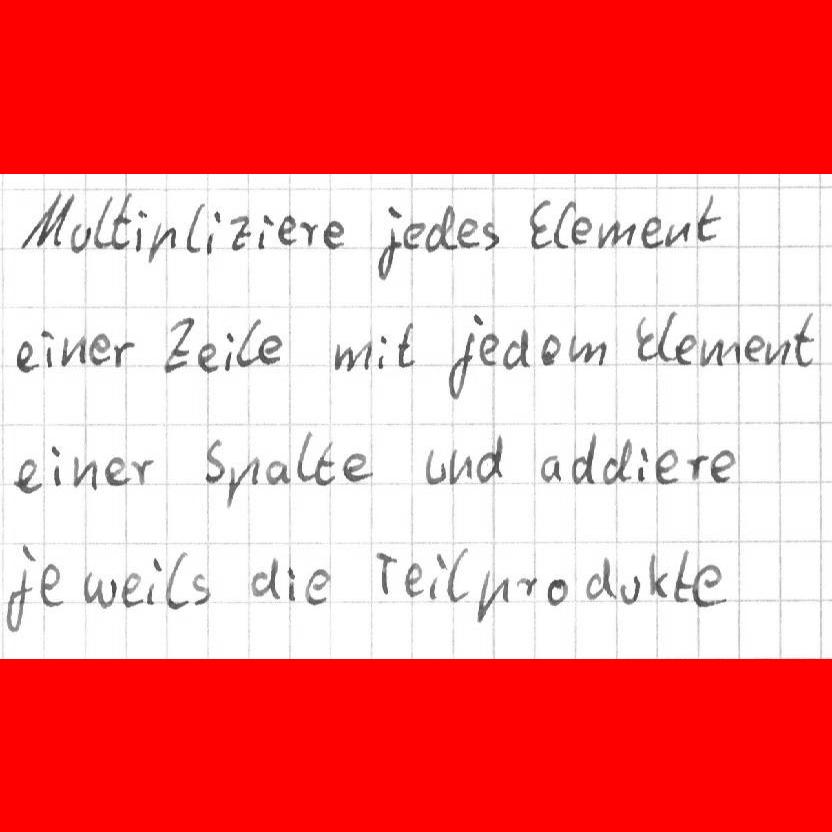 Multipliziere jedes Element
einer Zeile mit jedem Element
einer Spalte und addiere
jeweils die Teilprodukte